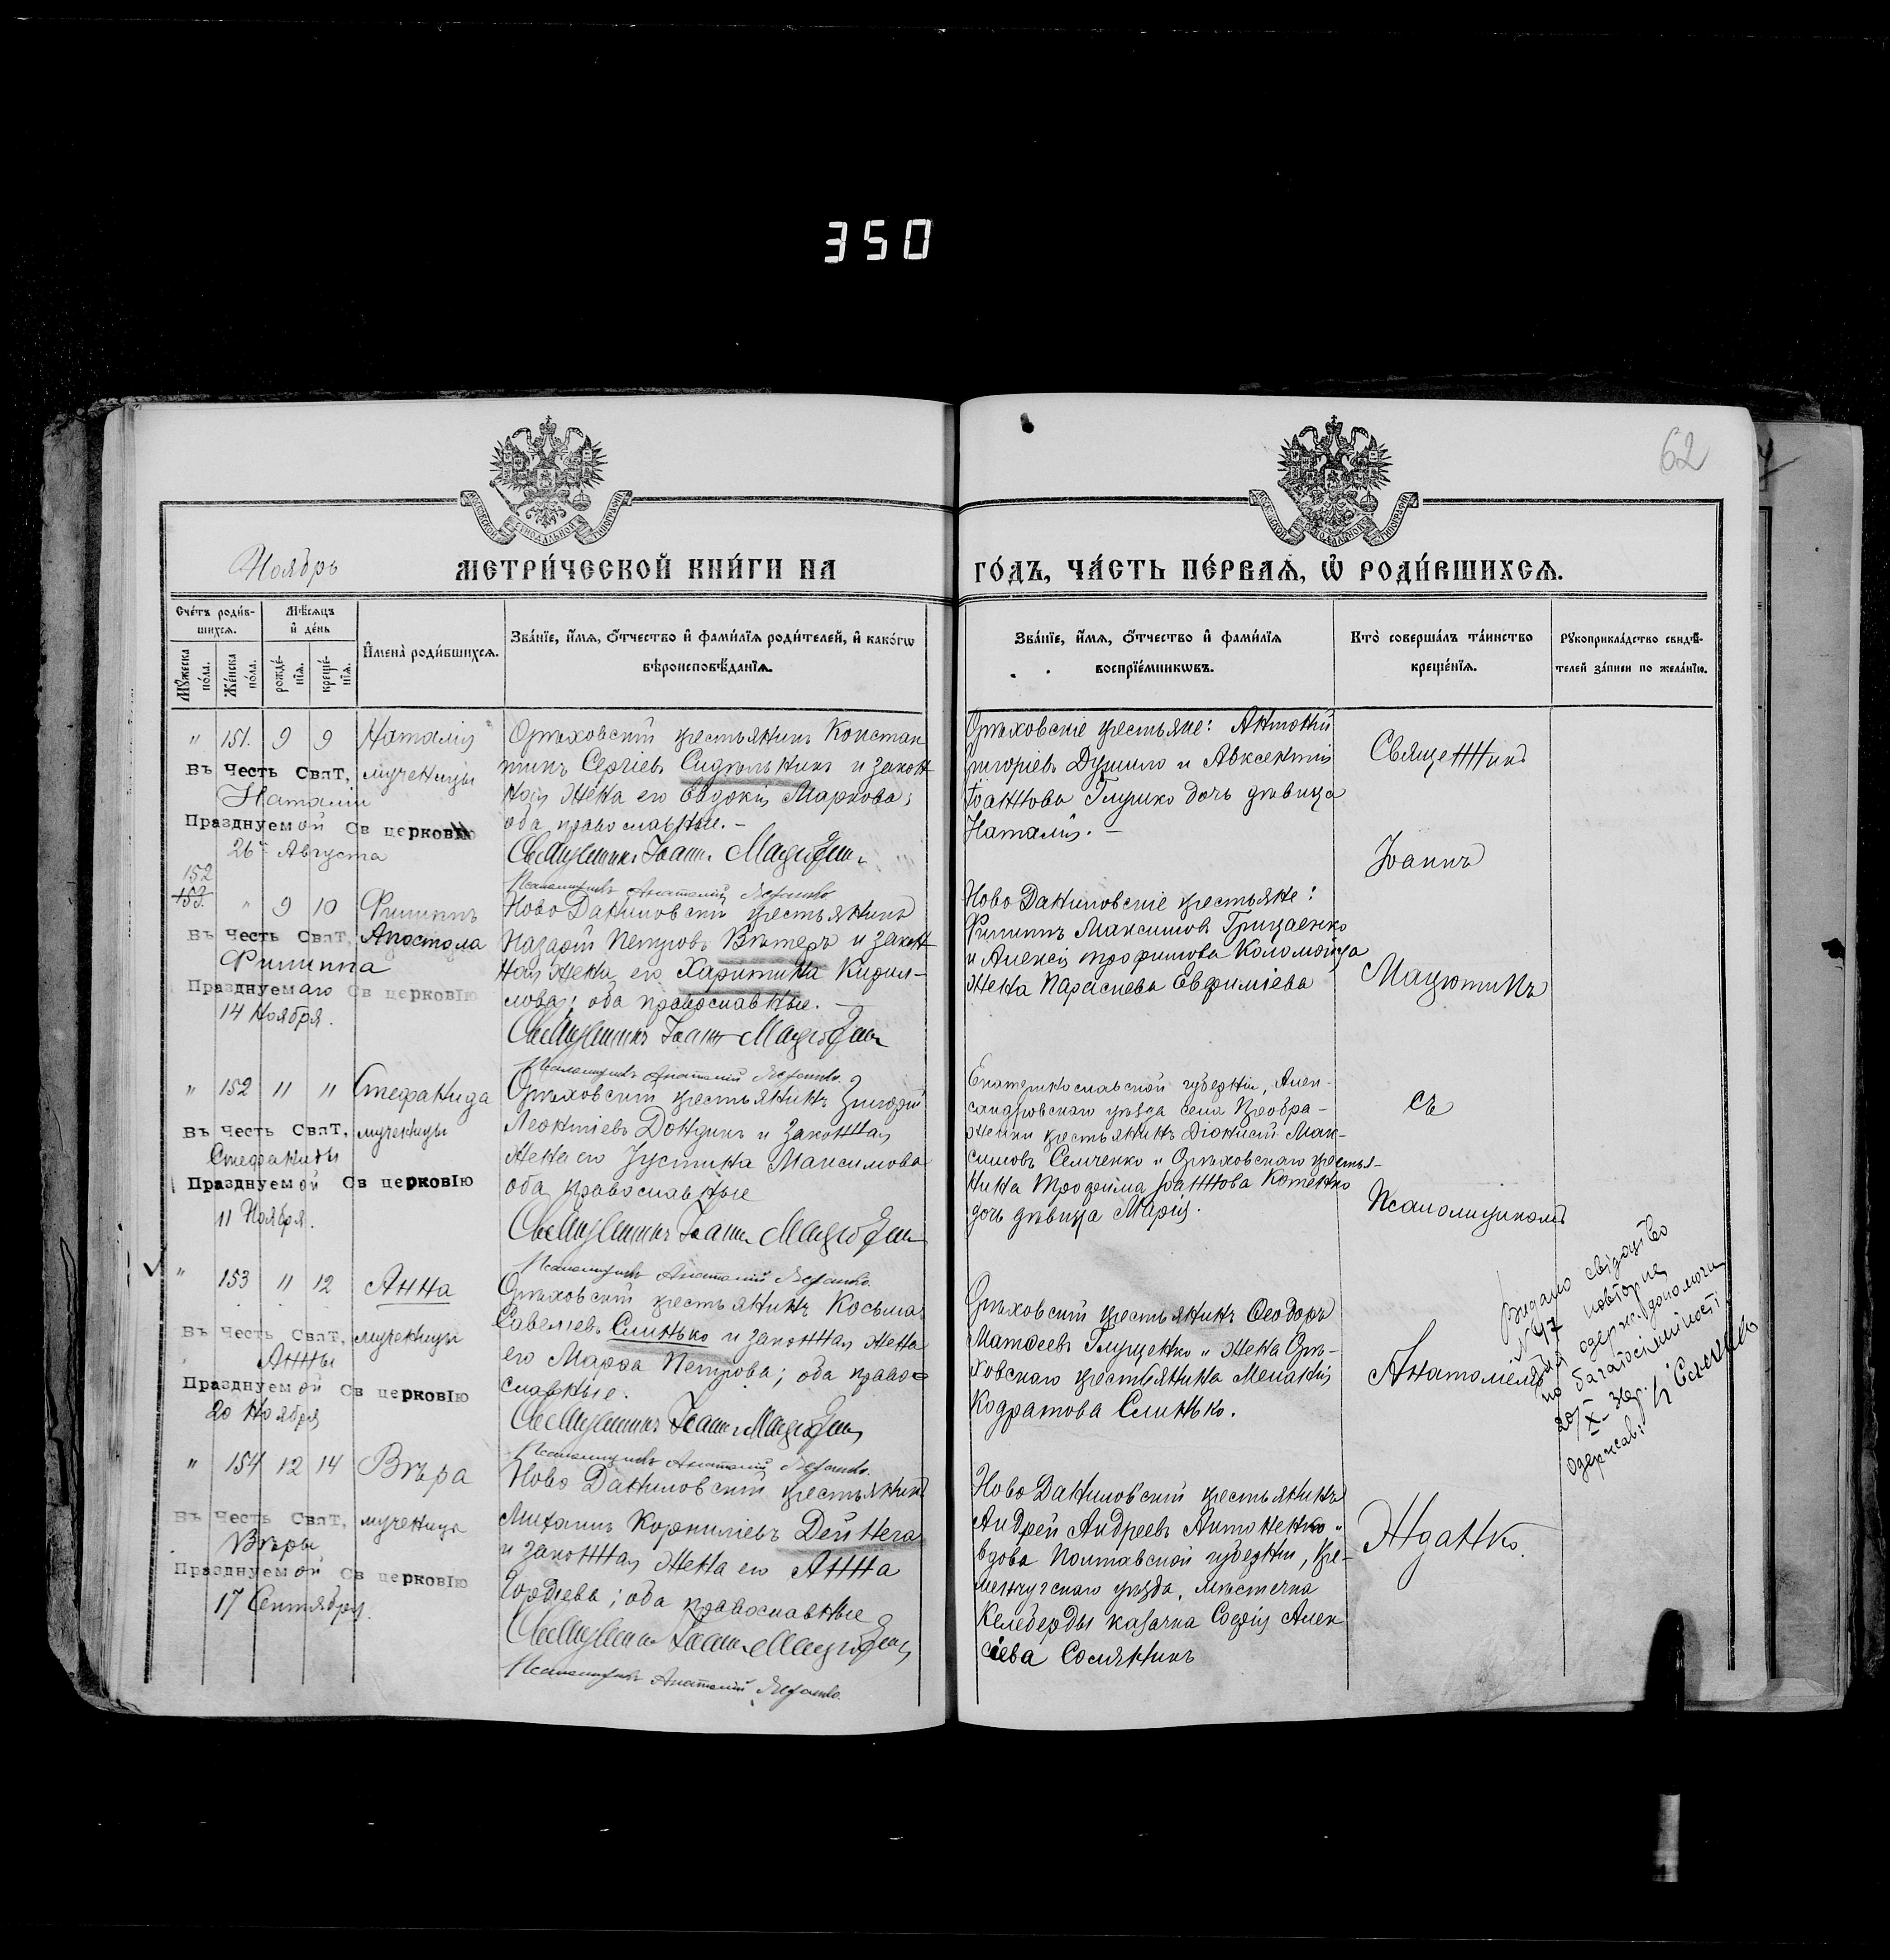 350
62
Ноябрь
МЕТРИ́ЧЕСКОЙ КНИ́ГИ НА ГО́ДЪ, ЧА́СТЬ ПЕ́РВАѦ, Ѡ РОДИ́ВШИХСѦ.
Сче́тъ роди́вшихсѧ.
Мꙋ́жеска по́ла.
Же́нска по́ла.
Мѣ́сѧцъ и҆ де́нь
рожде́нїѧ.
креще́нїѧ.
И҆мена̀ роди́вшихсѧ.
Зва́нїе, и҆́мѧ, ѻ҆́тчество и҆ фами́лїѧ роди́телей, и҆ како́гѡ
вѣроисповѣ́данїѧ.
Зва́нїе, и҆́мѧ, ѻ҆́тчество и҆ фами́лїѧ
воспрїе́мникѡвъ.
Кто̀ соверша́лъ та́инство
креще́нїѧ.
Рꙋкоприкла́дство свидѣ́-
телей за́писи по жела́нїю.
" 151. 9 9 Наталія
Въ Честь Свят, мученицы
Наталіи
Празднуемой Св церковію
26го Августа
Орѣховскій крестьянинъ Констан
тинъ Сергіевъ Сидѣльникъ и закон
ная жена его Евдокія Маркова;
оба православные. –
Священникъ Іоаннъ Мацютинъ
Псаломщикъ Анатолій Жданко
Орѣховскіе крестьяне: Антоній
Григоріевъ Душило и Авксентія
Іоаннова Глушко дочь дѣвица
Наталія. –
Священникъ
Іоаннъ
152
153. " 9 10 Филиппъ
Въ Честь Свят, Апостола
Филиппа
Празднуемаго Св церковію
14 Ноября.
Ново Даниловскій крестьянинъ
Назарій Петровъ Вѣтеръ и закон
ная жена его Харитина Кирил-
лова; оба православные. –
Священникъ Іоаннъ Мацютинъ
Псаломщикъ Анатолій Жданко.
Ново Даниловскіе крестьяне:
Филиппъ Максимовъ Грицаенко
и Алексія Трофимова Коломойца
жена Параскева Евфиміева
Мацютинъ
" 152 11 11 Стефанида
Въ Честь Свят, мученицы
Стефаниды
Празднуемой Св церковію
11 Ноября.
Орѣховскій крестьянинъ Григорій
Леонтіевъ Дондикъ и законная
жена его Іустина Максимова
оба православные
Священникъ Іоаннъ Мацютинъ
Псаломщикъ Анатолій Жданко.
Екатеринославской губерніи, Алек-
сандровскаго уѣзда села Преобра-
женки крестьянинъ Діонисій Мак-
симовъ Семченко и Орѣховскаго крестья-
нина Трофима Іоаннова Котенко
дочь дѣвица Марія.
съ
Псаломщикомъ
" 153 11 12 Анна
Въ Честь Свят, мученицы
Анны
Празднуемой Св церковію
20 Ноября
Орѣховскій крестьянинъ Косьма
Савеліевъ Слинько и законная жена
его Марфа Петрова; оба право-
славные.
Священникъ Іоаннъ Мацютинъ
Псаломщикъ Анатолій Жданко.
Орѣховскій крестьянинъ Ѳеодоръ
Матѳеевъ Глущенко и жена Орѣ-
ховскаго крестьянина Меланія
Кодратова Слинько.
Анатоліемъ
Видано свідоцтво
№ 47 повторне
для одерж. допомоги
по багатосімейності
20/X-
одержав:
" 154 12 14 Вѣра
Въ Честь Свят, мученица
Вѣры
Празднуемой Св церковію
17 Сентября.
Ново Даниловскій крестьянинъ
Михаилъ Корниліевъ Дейнега
и законная жена его Анна
Гордіева; оба православные
Священникъ Іоаннъ Мацютинъ
Псаломщикъ Анатолій Жданко.
Ново Даниловскій крестьянинъ
Андрей Андреевъ Антоненко и
вдова Полтавской губерніи, Кре-
менчугскаго уѣзда, мѣстечка
Келеберды казачка Софія Алек
сіева Соляникъ
Жданко.